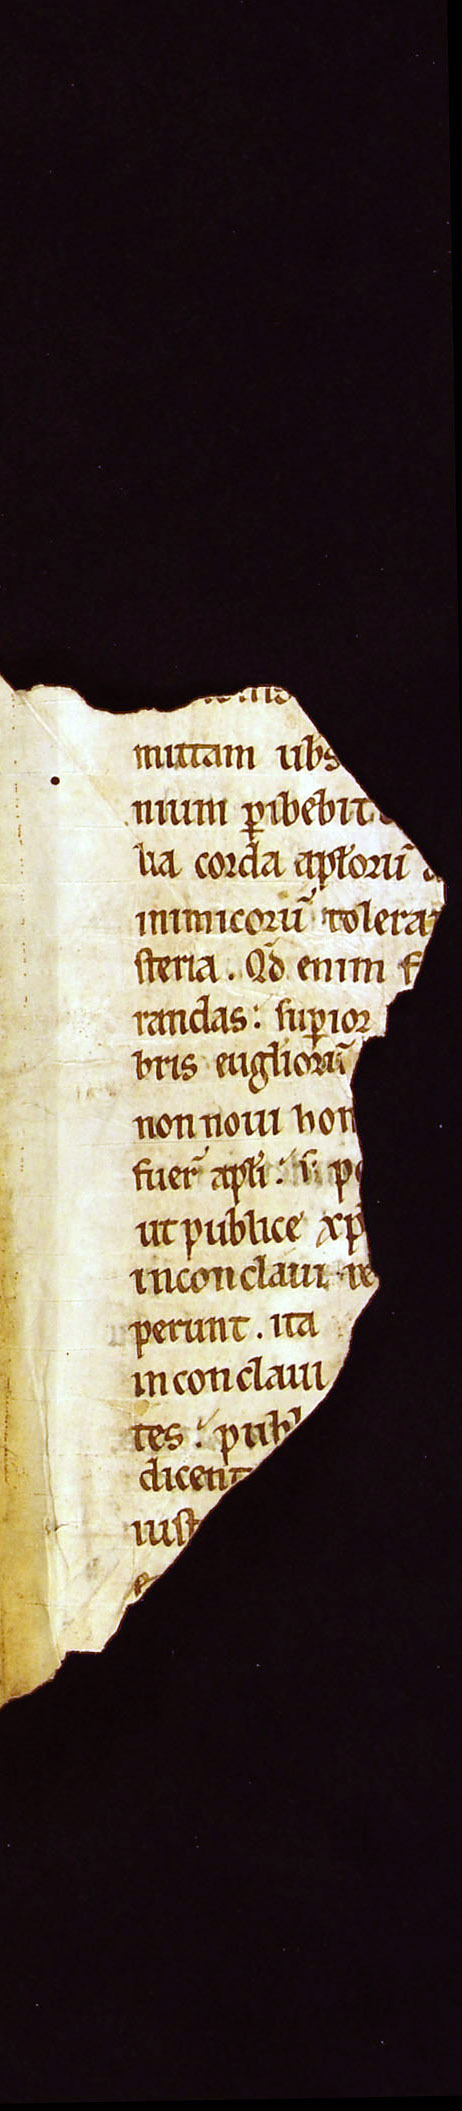 mittam
nium ꝑibebit
lia corda apłorū
inimicorū tolera
steria. Qđ enim
randas: suꝑior
bris euglioꝝ
non noui hom
fuer̄ apłi: s;
ut publice xp
inconclaui
perunt. ita
inconclaui
tes: publ
dicent
iust